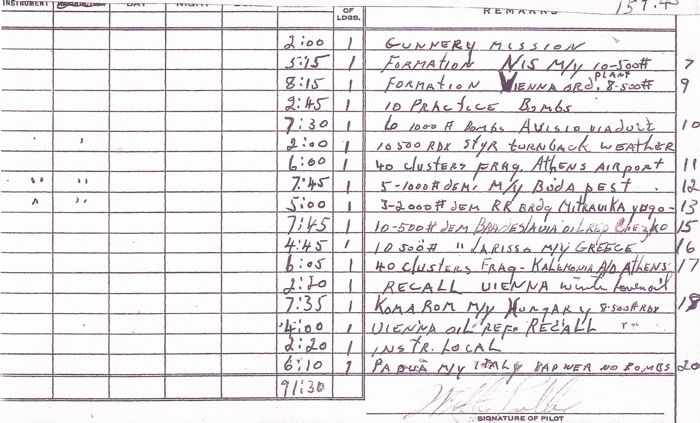 INSTRUMENT DAY NIGHT OF LDGS. REMARKS 159.4
2:00 1 GUNNERY MISSION
5:15 1 FORMATION NIS M/Y 10-500# 7
8:15 1 FORMATION VIENNA ORD. PLANT 8-500# 9
2:45 1 10 PRACTICE BOMBS
7:30 1 6 1000# BOMBS AVISIO VIADUCT 10
2:00 1 10 500 RDX STYR TURNBACK WEATHER
6:00 1 40 CLUSTERS FRAG. ATHENS AIRPORT 11
" " 7:45 1 5-1000# DEM. M/Y BUDAPEST. 12
" " 5:00 1 3-2000# DEM RR BRDG MITRAVIKA YUGO- 13
7:45 1 10-500# DEM OIL REF 15
4:45 1 10 500# " LARISSO M/Y GREECE 16
6:05 1 40 CLUSTERS FRAG- A/D ATHENS 17
2:20 1 RECALL VIENNA
7:35 1 KOMAROM M/Y HUNGARY 8-500# RDX 18
4:00 1 VIENNA OIL REF. RECALL
2:20 1 INSTR. LOCAL
6:10 1 PADUA M/Y ITALY BAD WER NO BOMBS 20
91:30
SIGNATURE OF PILOT